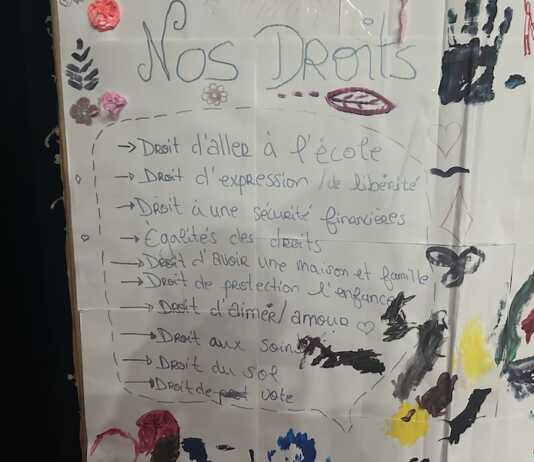 Nos DRoits
→ DRoit d'aller à l'école
→ DRoit d'expression /de libérité
→ DRoit à une sécurité financières
→ Egalités des droits
→ DRoit d'avoir une maison et famille
→ DRoit de protection l'enfance
→ DRoit d'aimér/amour
→ DRoit aux soins
→ DRoit du sol
→ DRoit de vote